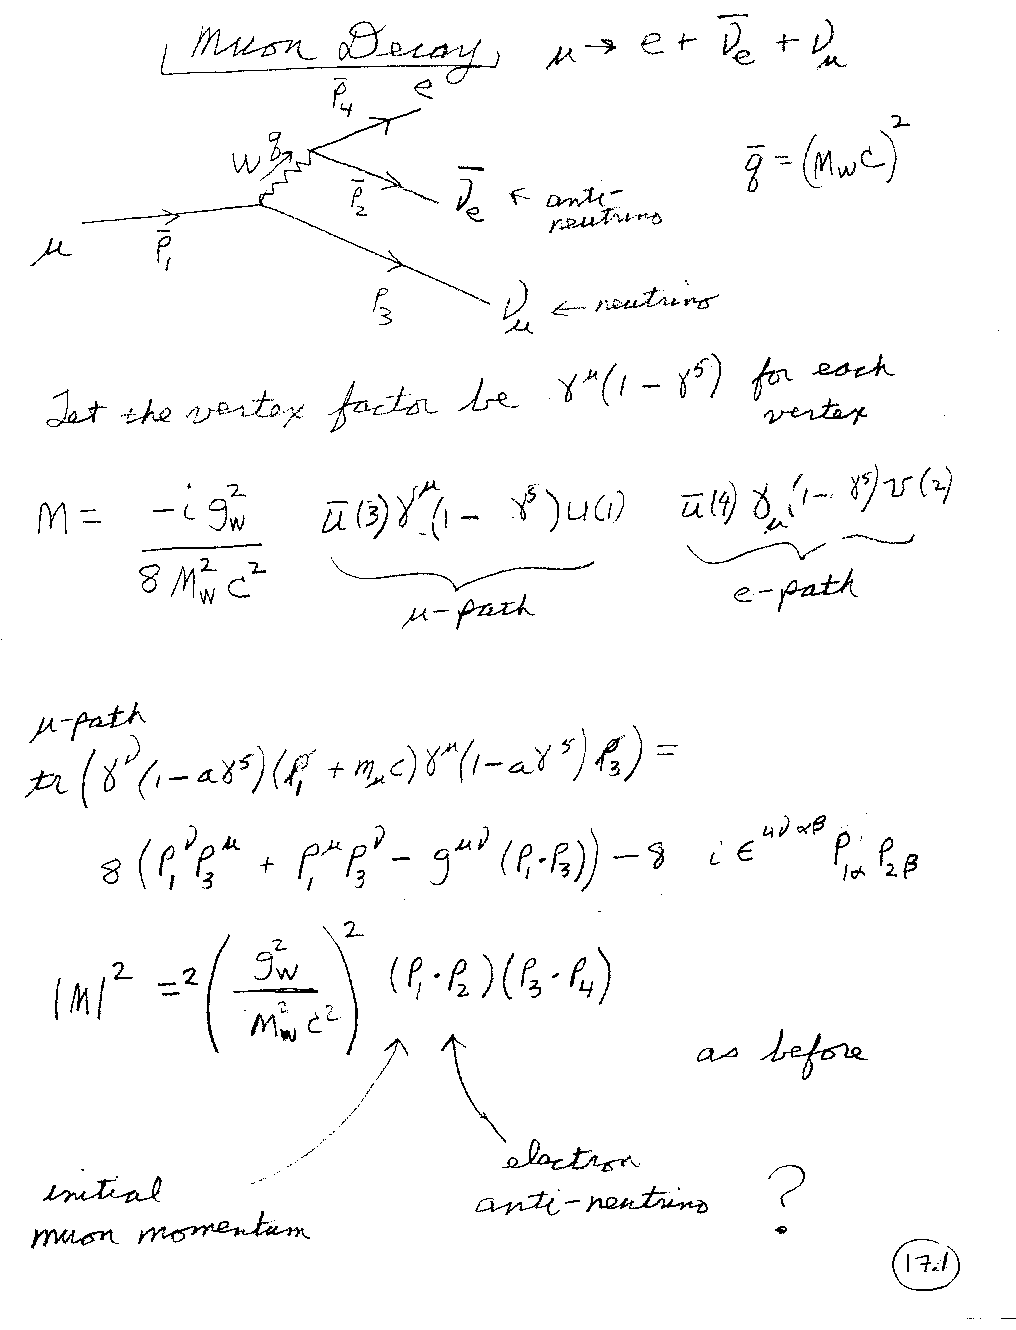 Muon Decay μ → e + ν̄_e + ν_μ
p̄_4 e
W q
q̄ = (M_W c)^2
p̄_2 ν̄_e ← anti-neutrino
μ p̄_1
p_3 ν_μ ← neutrino
Let the vertex factor be γ^μ(1 - γ^5) for each vertex
M = -i g_w^2 / 8 M_W^2 c^2 ū(3) γ^μ (1 - γ^5) u(1) ū(4) γ_μ (1 - γ^5) v(2)
μ-path e-path
μ-path
tr (γ^ν (1 - aγ^5)(p̸_1 + m_μ c) γ^μ (1 - aγ^5) p̸_3) =
8 (p_1^ν p_3^μ + p_1^μ p_3^ν - g^{μν} (p_1·p_3)) - 8 i ε^{μναβ} p_{1α} p_{2β}
|M|^2 = 2 (g_w^2 / M_W^2 c^2)^2 (p_1·p_2)(p_3·p_4)
as before
initial muon momentum
electron anti-neutrino ?
17.1